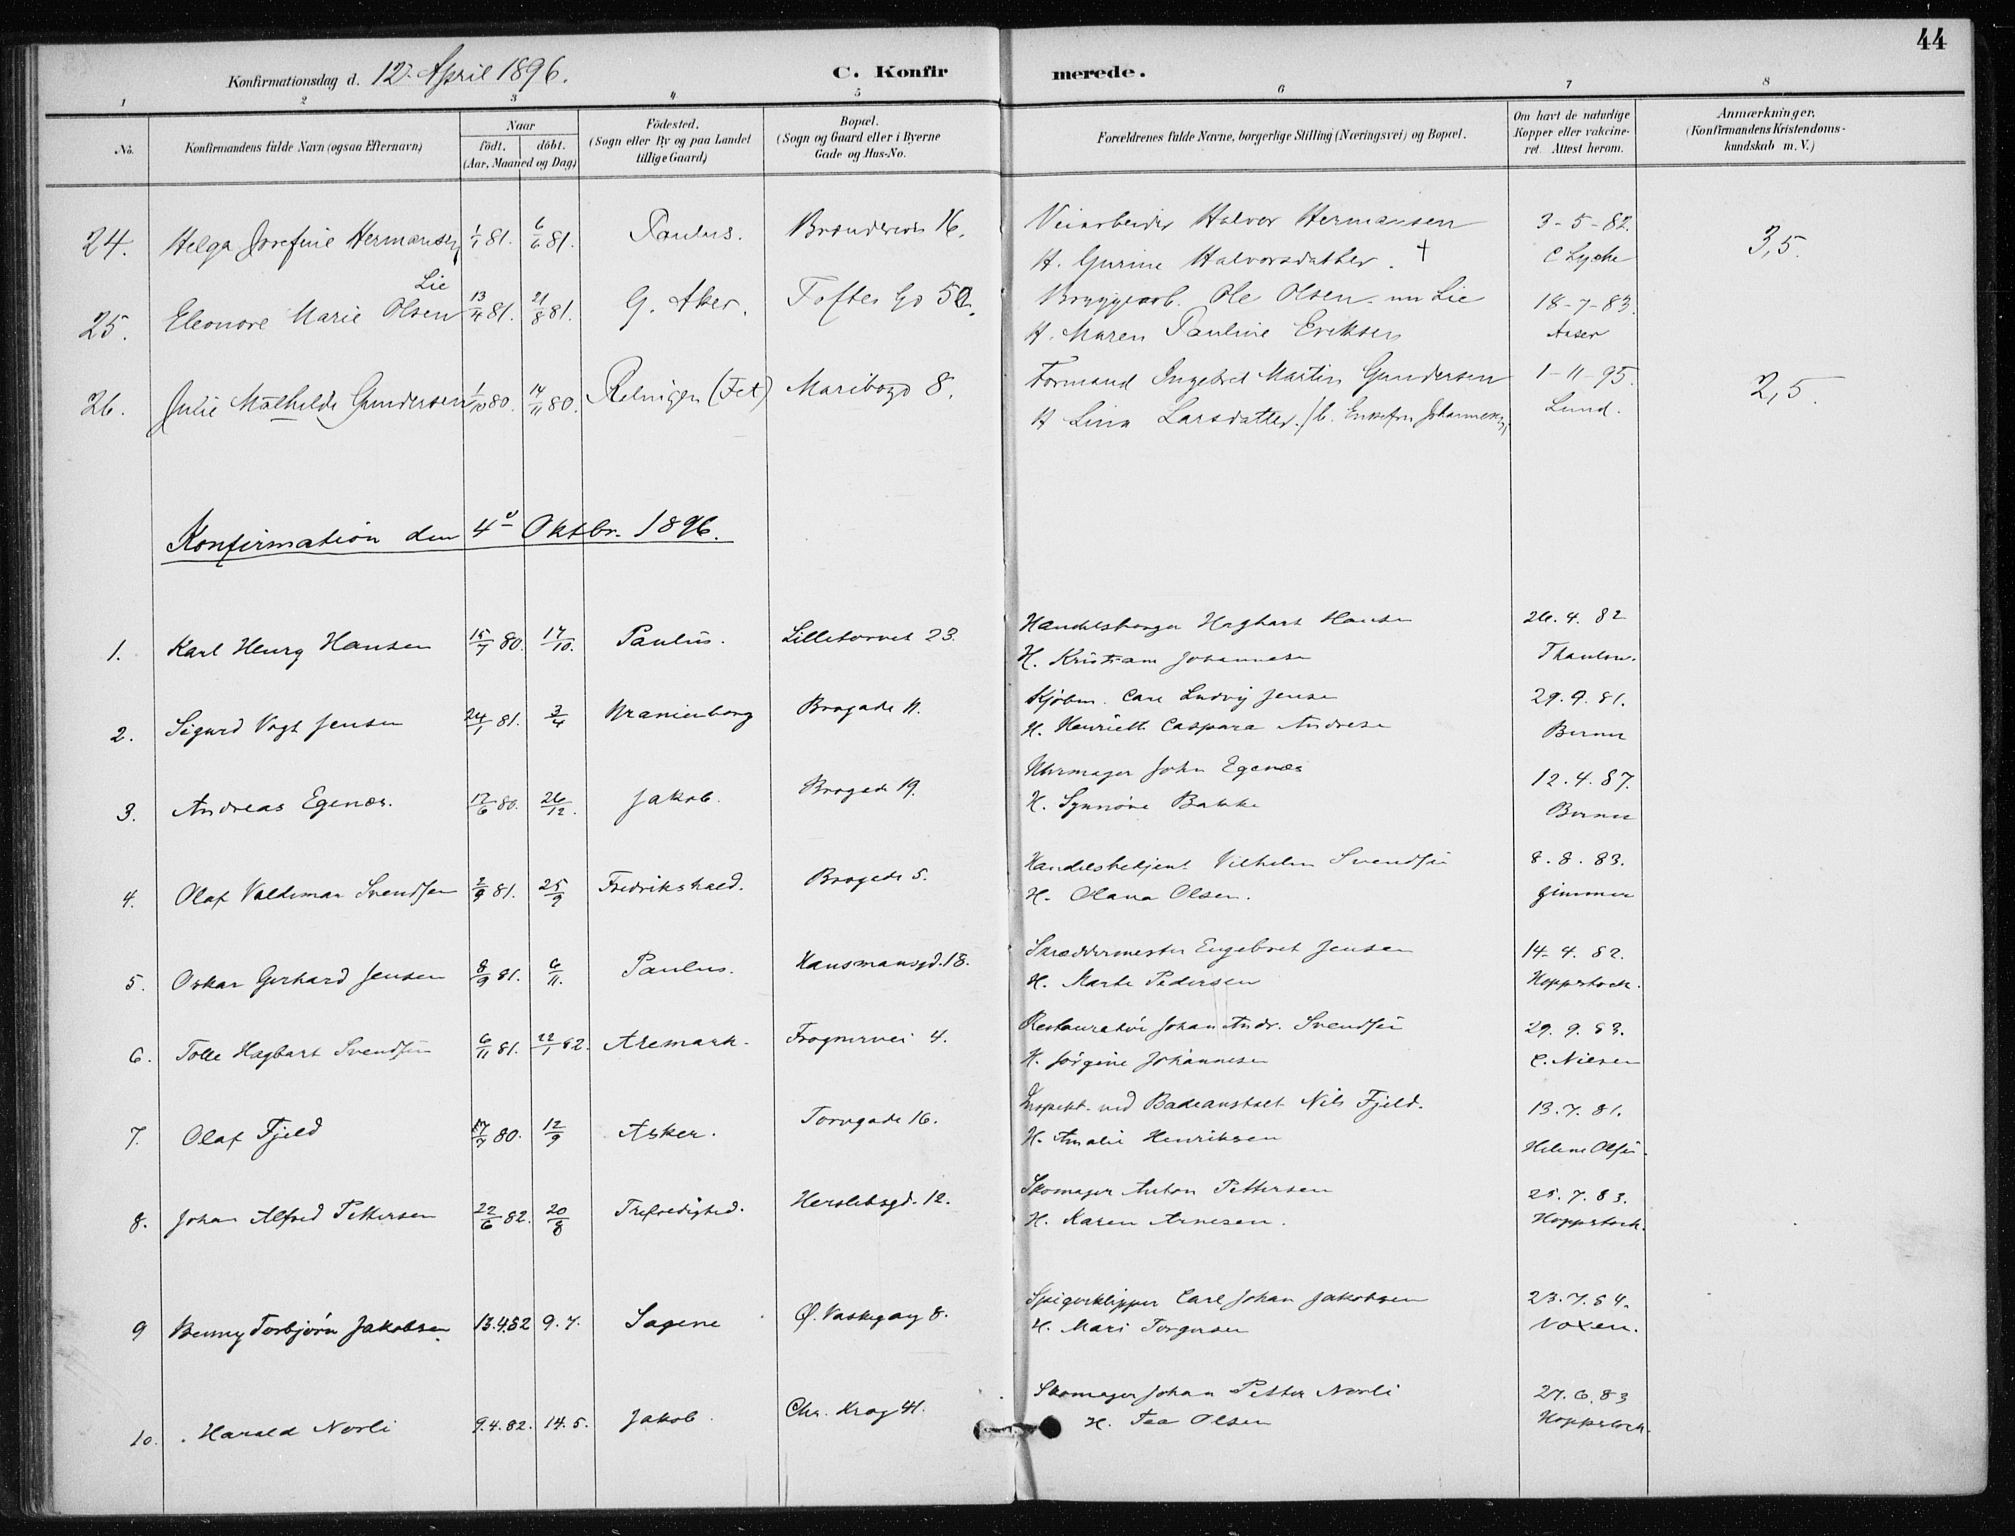 44
Konfirmationsdag d. 12. April 1896. C. Konfirmerede.
1 2 3 4 5 6 7 8
No. Konfirmandens fulde Navn (ogsaa Efternavn) Naar födt. döbt. (Aar, Maaned og Dag) Födested. (Sogn eller By og paa Landet tillige Gaard) Bopæl. (Sogn og Gaard eller i Byerne Gade og Hus-No. Forældrenes fulde Navne, borgerlige Stilling (Næringsvei) og Bopæl. Om havt de naturlige Kopper eller vakcineret. Attest herom. Anmærkninger. (Konfirmandens Kristendomskundskab m. V.)
24. Helga Josefine Hermansen 1/1 81. 6/6 81. Paulus. 16. Veiarbeider Halvor Hermansen 3-5-82. 3,5.
H. Gurine Halvorsdatter. † C Lyche
Lie
25. Eleonore Marie Olsen 81. 21/8 81. G. Aker. Toftes Gd 50. Bryggearb. Ole Olsen nu Lie 18-7-83.
H. Maren Pauline Eriksen Aaser
26. Julie Mathilde Gundersen 1/10 80. 14/11 80. Relingen (Fet) Maribogd 8. Formand Ingebret Martin Gundersen 1-11-95. 2,5.
H Lina Larsdatter. Johannesen Lund.
Konfirmation den 4de Oktbr. 1896.
1. Karl Henry Hansen 15/7 80. 17/10. Paulus. Lilletorvet 23. Hansen 26.4.82
H. Johannesen Thaulow.
2. Sigurd Vogt Jensen 24/1 81. 3/4 Uranienborg Brogade 11. Kjøbm. Carl Ludvig Jensen 29.9.81.
H. Henriette Caspara Andresen Berner
3. Andreas Egenæs. 17/6 80. 26/12. Jakob. Brogade 19. Uhrmager John Egenæs 12.4.87.
H. Synnøve Bakke Berner
4. Olaf Valdemar Svendsen 2/9 81. 25/9 Fredrikshald. Brogade 5. Handelsbetjent Vilhelm Svendsen 8.8.83.
H. Olava Olsen. Gimmer
5. Oskar Gerhard Jensen 8/9 81. 6/11. Paulus. Hausmansgd. 18. Skræddermester Engebret Jensen 14-4.82.
H. Marte Pedersen Hoppstock.
6. Tolle Hagbart Svendsen 6/11 81. 22/1 82. Aremark. Frognervei 4. Restauratør Johan Andr. Svendsen 29.9.83.
H. Jørgine Johannesen C. Nilsen
7. Olaf Fjeld 17/7 80. 12/9 Asker. Torvgade 16. Inspekt. ved Badeanstalt Nils Fjeld. 13.7.81.
H. Amalie Henriksen Helene Olsen.
8. Johan Alfred Pettersen 22/6 82. 20/8 Trefoldighed. Herslebsgd. 12. Skomager Anton Pettersen 25.7.83.
H. Karen Arnesen. Hoppstock.
9 Benny Torbjørn Jakobsen. 13.4.82 9.7. Sagene Ø. Vaskegang 8. Spigerklipper Carl Johan Jakobsen 23.7.84.
H. Mari Torgersen Voxen.
10. Harald Norli 9.4.82. 14.5. Jakob. Chr. Krog 41. Skomager Johan Petter Norli 27.6.83
H. Tea Olsen Hoppstock.